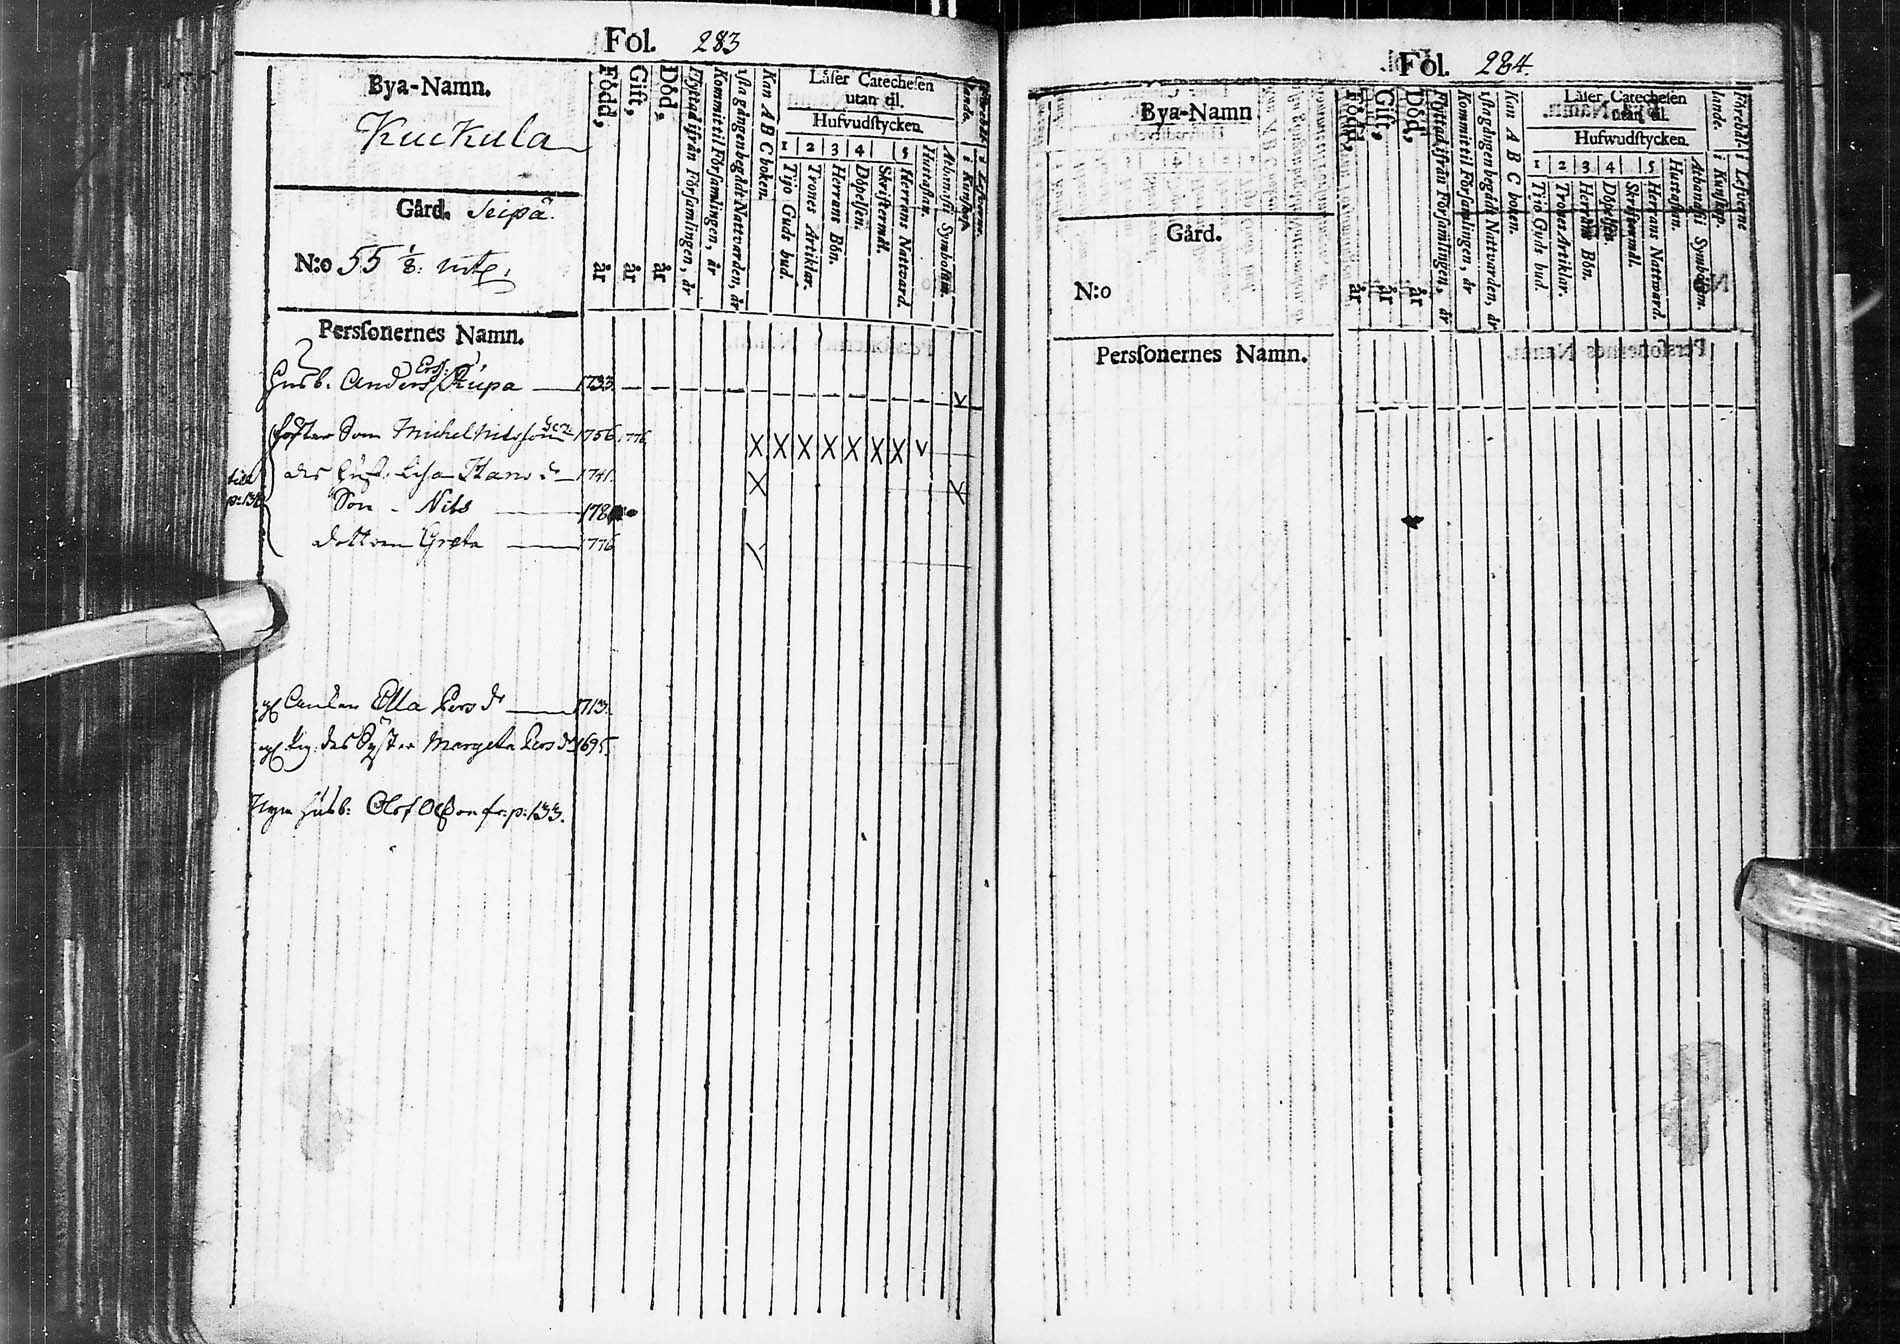 Fol. 283
Bya-Namn.
Kuckula
Gård. Seipä.
N:o 55 1/8. mtl.
Persſonernes Namn.
Född, år
Gift, år
Död, år
Flyttad ifrån Förſamlingen, år
Kommit til Förſamlingen, år
1ſta gången begådt Nattvarden, år
Kan A B C boken.
Läſer Catecheſen
utan til.
Hufvudſtycken.
1 2 3 4 5
Tijo Guds bud.
Trones Artiklar.
Herrans Bön.
Döpelſen.
Skriftermål.
Herrans Nattvard.
Huſtaflan.
Athanaſii Symbolum.
i Kunſkap.
i Lefverne.
Husb. Anders Ers: Riipa 1733.
foster Son Michel Nilsson 1756. 776
des hust. Lisa Hans dr 1741.
till
p: 138
Son - Nils 178
dottren Greta 1776
gl Enkan Ella Pers dr 1713.
gl Pig. des Syster Margeta Pers dr 1695.
Husb: Olof Olsson fr. p: 133.
Fol. 284.
Bya-Namn
Gård.
N:o
Persſonernes Namn.
Född, år
Gift, år
Död, år
Flyttad ifrån Förſamlingen, år
Kommit til Förſamlingen, år
1ſta gången begådt Nattvarden, år
Kan A B C boken.
Läſer Catecheſen
utan til.
Hufwudſtycken.
1 2 3 4 5
Tijo Guds bud.
Trones Artiklar.
Herrans Bön.
Döpelſen.
Skriftermål.
Herrans Nattward.
Huſtaflan.
Athanaſii Symbolum.
Förehållande.
i Kunſkap.
i Lefverne